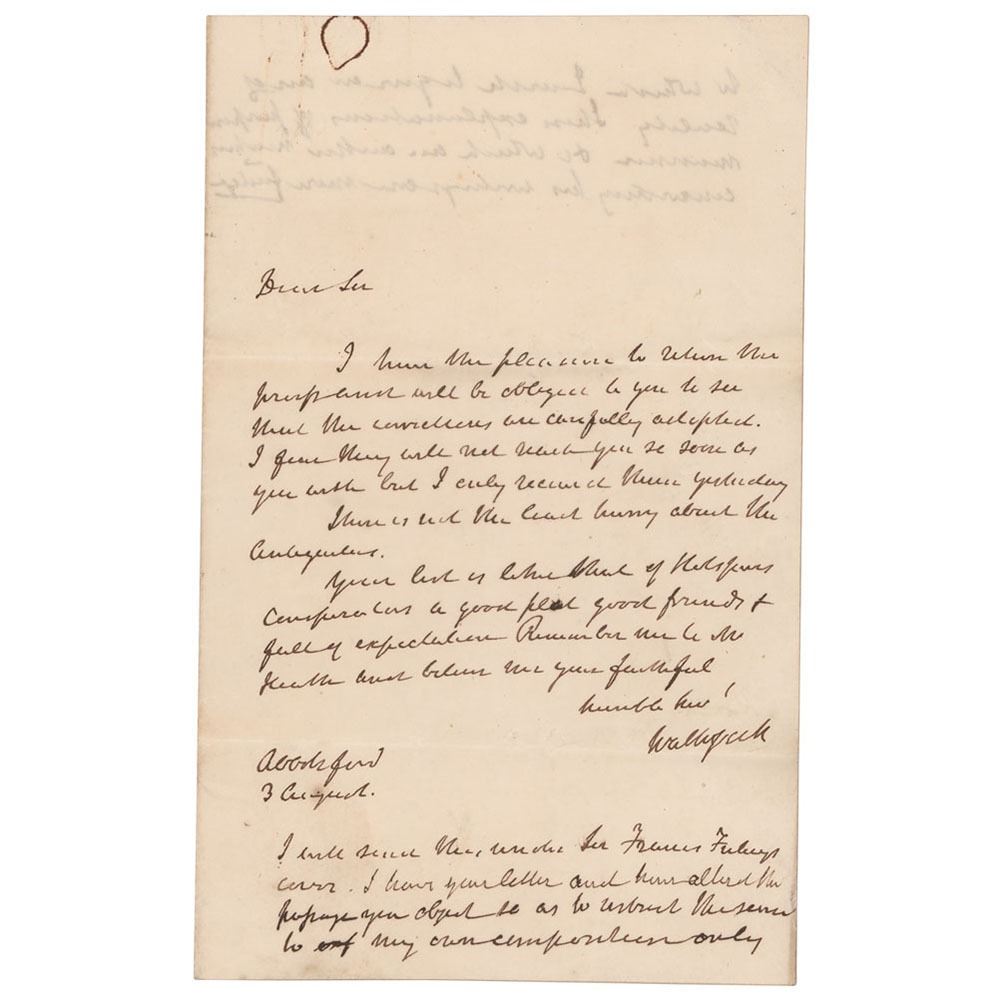 Dear Sir
I have the pleasure to return the
proofs and will be obliged to you to see
that the corrections are carefully adopted.
I fear they will not reach you so soon as
you wish but I only received them yesterday
There is not the least hurry about the
Antiquities.
Your list is like that of Hotspurs
Conspirators a good plot good friends &
full of expectation Remember me to Mr
Heath and believe me your faithful
humble Sert
Walter Scott
Abbotsford
3 August.
I will send this under Sir Francis Freelings
cover. I have your letter and have altered the
passage you object so as to restrict the sense
to my own composition only